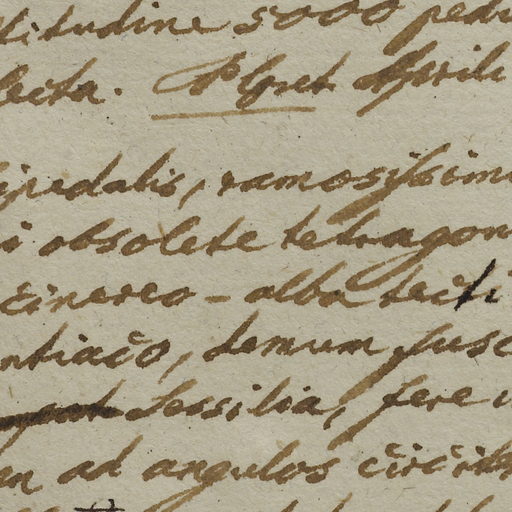 titudine 5000 ped
lecta. Aprili
ipedalis, ramosissim
i obsolete tetragon
cinereo - alba tecti
ntiaco, demum fusc
sessilia, fere
en ad angulos circit